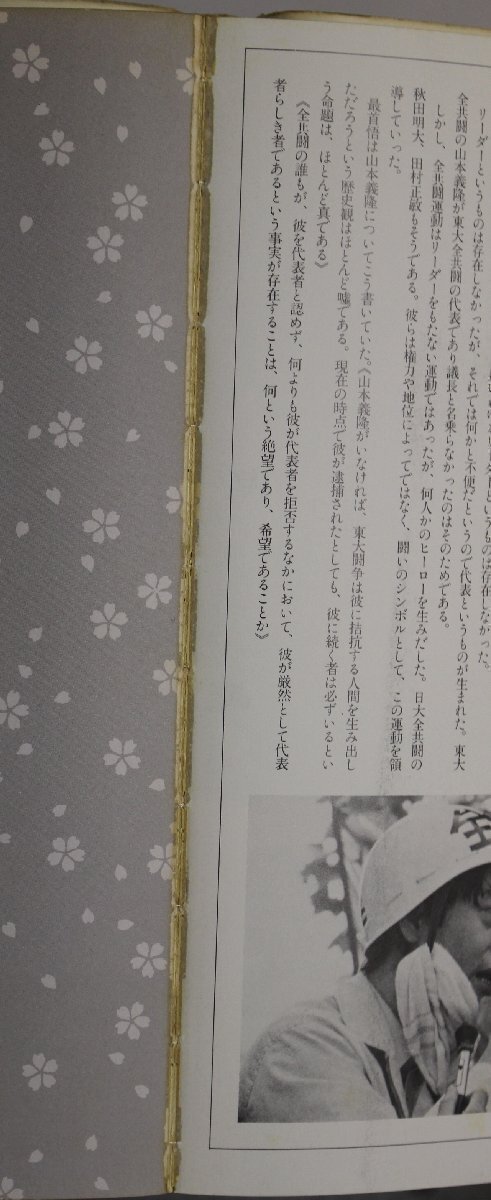 ダーというものは存在しなかった。
リーダーというものは存在しなかったが、それでは何かと不便だというので代表というものが生まれた。東大
全共闘の山本義隆が東大全共闘の代表であり議長と名乗らなかったのはそのためである。
しかし、全共闘運動はリーダーをもたない運動ではあったが、何人かのヒーローを生みだした。日大全共闘の
秋田明大、田村正敏もそうである。彼らは権力や地位によってではなく、闘いのシンボルとして、この運動を領
導していった。
最首悟は山本義隆についてこう書いていた。《山本義隆がいなければ、東大闘争は彼に拮抗する人間を生み出し
ただろうという歴史観はほとんど嘘である。現在の時点で彼が逮捕されたとしても、彼に続く者は必ずいるとい
う命題は、ほとんど真である》
《全共闘の誰もが、彼を代表者と認めず、何よりも彼が代表者を拒否するなかにおいて、彼が厳然として代表
者らしき者であるという事実が存在することは、何という絶望であり、希望であることか》